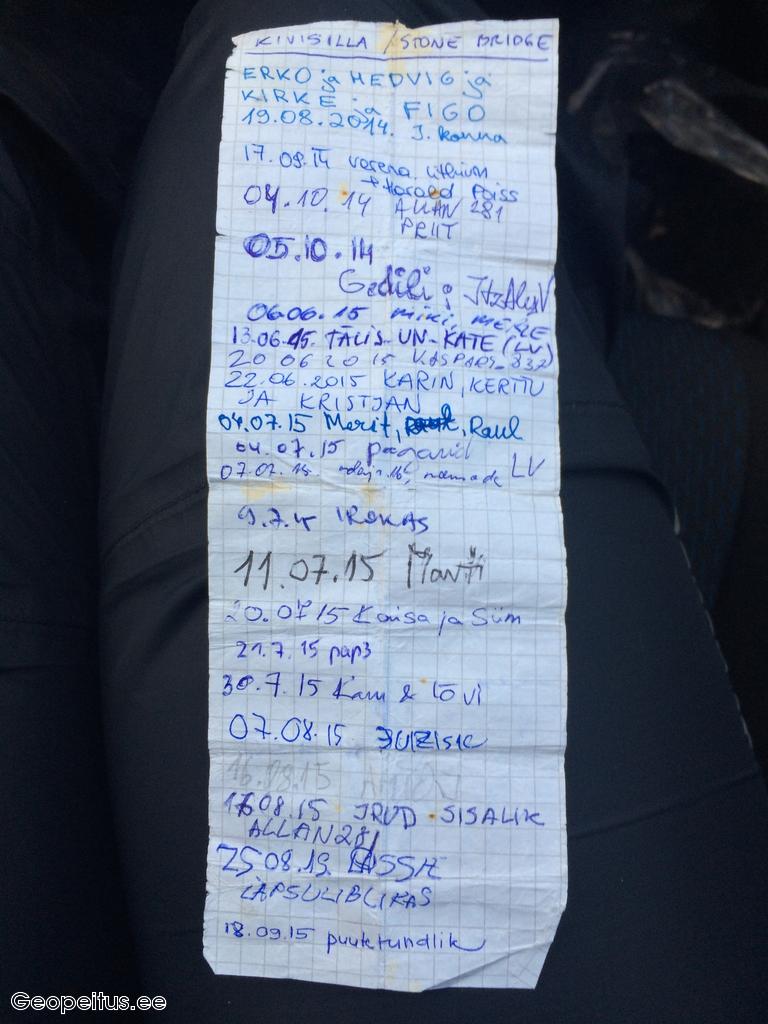 KIVISILLA / STONE BRIDGE
ERKO ja HEDVIG ja
KIRKE ja FIGO
19.08.2014. J. Kanna
17.08.14 verena
+ Harald
04.10.14 ALLAN 281
PRIIT
05.10.14
06.06.15 miki, MERLE
13.06.15 TĀLIS-UN-KATE (LV)
20 06 2015 KASPARS_832
22.06.2015 KARIN, KERTTU
JA KRISTJAN
04.07.15 Merit, Raul
04.07.15 paganid
LV
9.7.15 IROKAS
11.07.15
20.07.15 Kaisa ja Siim
21.7.15 pap3
30.7.15 &
07.08.15
16.08.15
16.08.15 SISALIK
ALLAN281
25.08.15
LAPSULIBLIKAS
18.09.15 puuktundlik
Geopeitus.ee